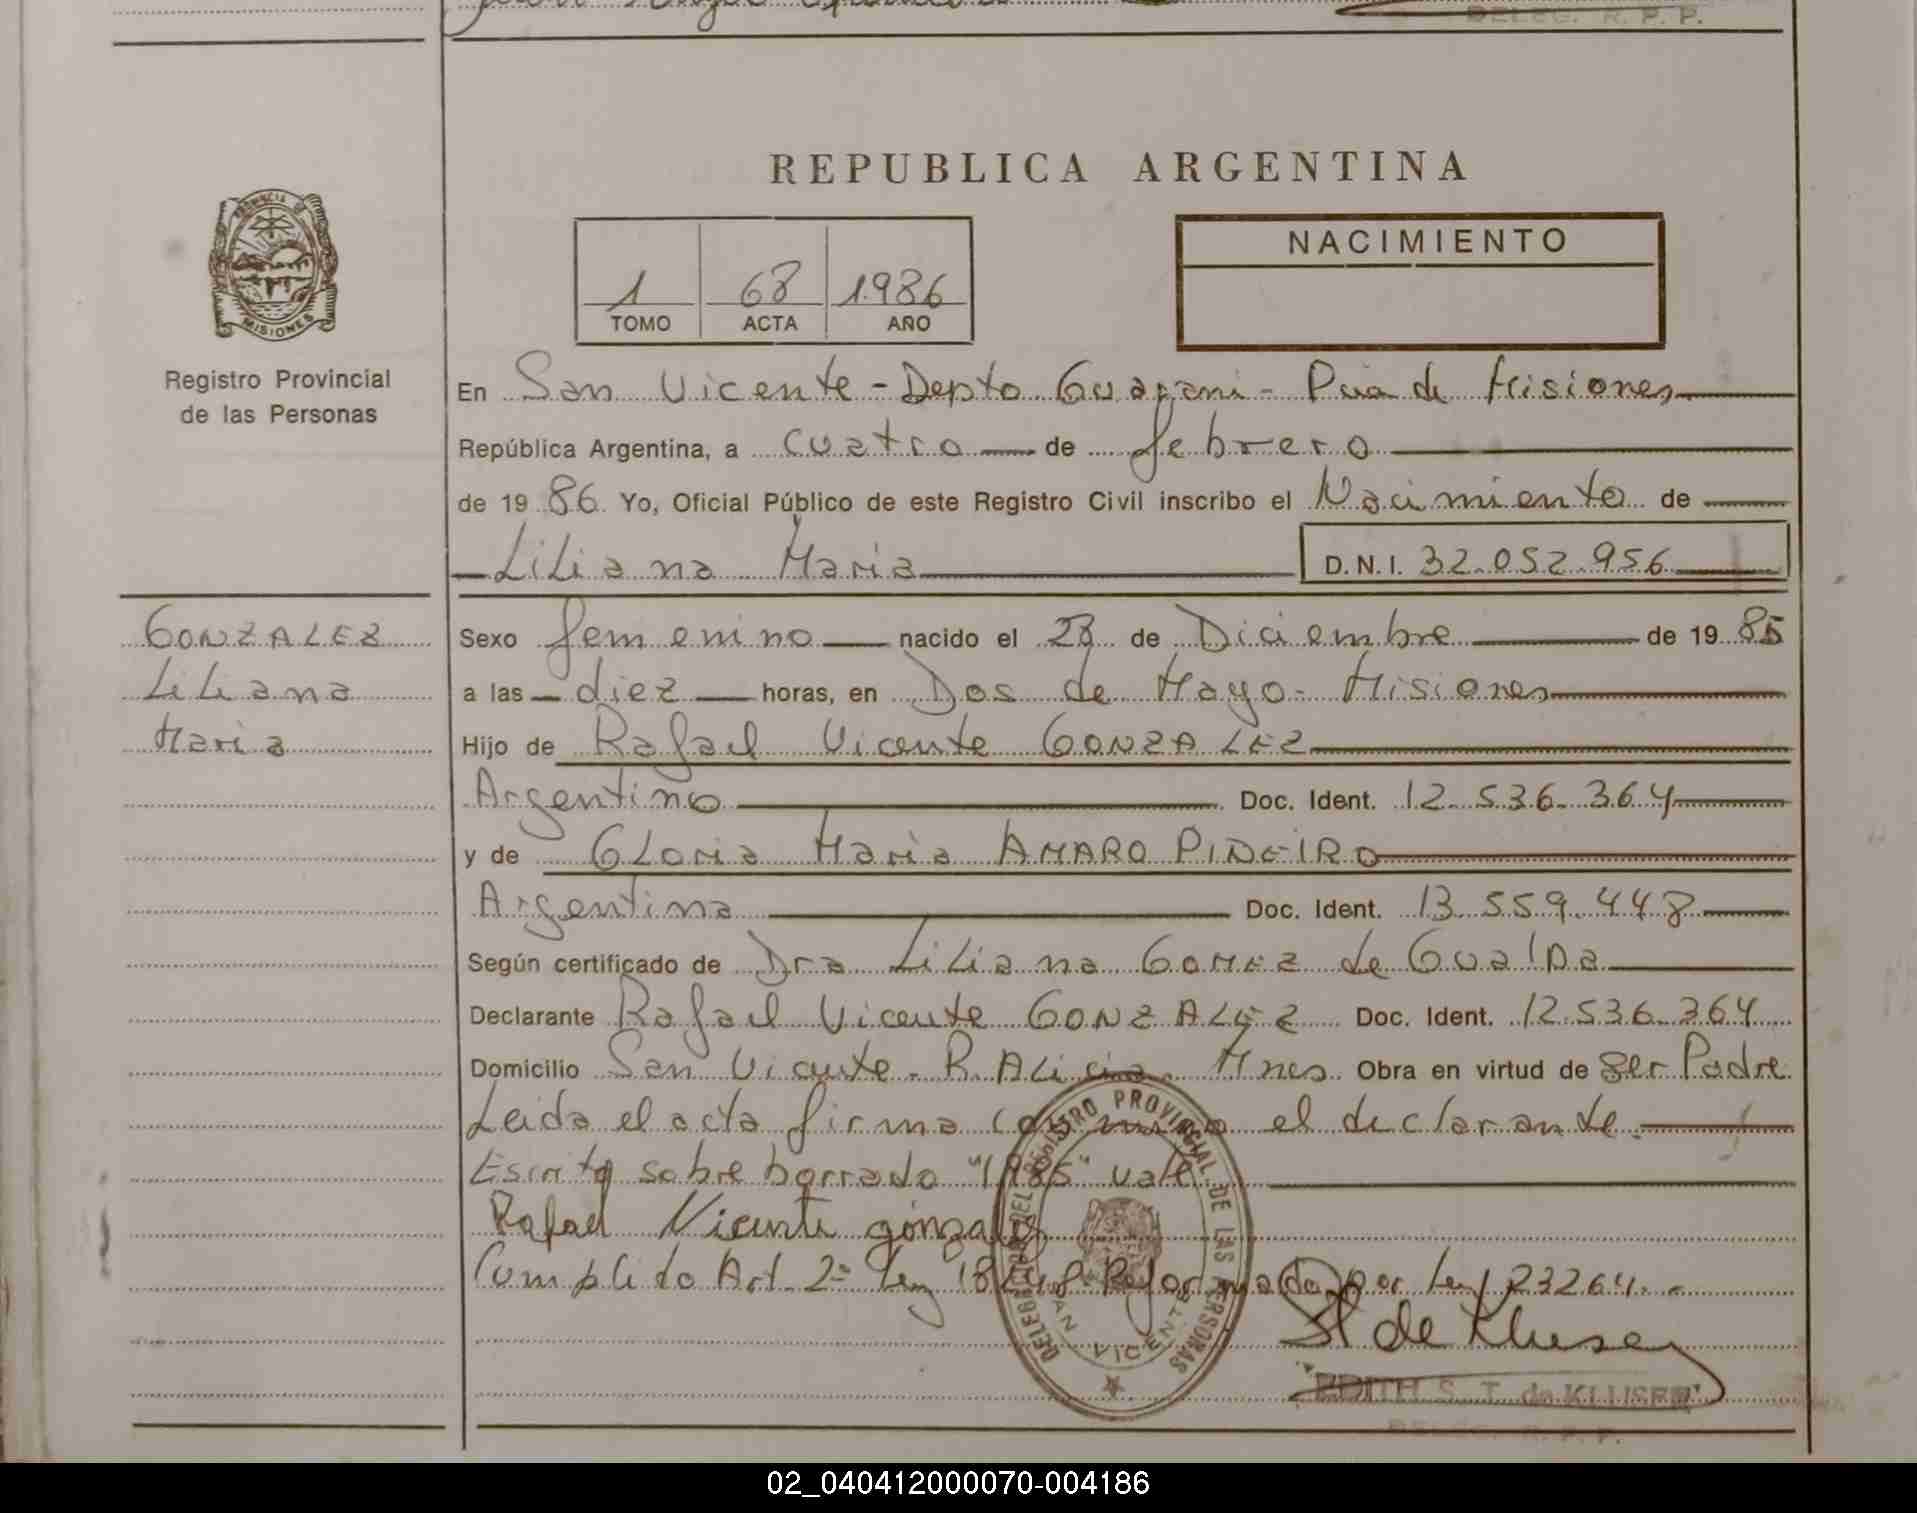 DELEG. R. P. P.
REPUBLICA ARGENTINA
PROVINCIA DE
MISIONES
Registro Provincial
de las Personas
1 68 1986
TOMO ACTA AÑO
NACIMIENTO
En San Vicente - Depto Guarani - Pcia de Misiones
República Argentina, a cuatro de febrero
de 19 86 Yo, Oficial Público de este Registro Civil inscribo el Nacimiento de
Liliana Maria D.N.I. 32.052.956
GONZALEZ
Liliana
Maria
Sexo femenino nacido el 28 de Diciembre de 19 85
a las diez horas, en Dos de Mayo - Misiones
Hijo de Rafael Vicente GONZALEZ
Argentino Doc. Ident. 12.536.364
y de Gloria Maria AMARO PIÑEIRO
Argentina Doc. Ident. 13.559.448
Según certificado de Dra Liliana GOMEZ de
Declarante Rafael Vicente GONZALEZ Doc. Ident. 12.536.364
Domicilio San Vicente - R. Alicia - Mnes Obra en virtud de ser Padre
Leida el acta firma conmigo el declarante.
Escrito sobre borrado "1985" vale
Rafael Vicente gonzalez
Cumplido Art. 2º Ley 18248 Reformado por Ley 23264.-
DELEGACION DEL REGISTRO PROVINCIAL DE LAS PERSONAS
SAN VICENTE
de Kluser
EDITH S. T. de KLUSER
DELEG. R. P. P.
02_040412000070-004186